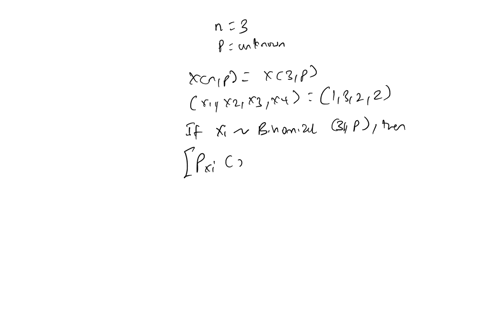 n = 3
P = unknown
X(n,p) = X(3,p)
(x1, x2, x3, x4) = (1,3,2,2)
If xi ~ Binomial (3,P), then
[Pxi (x